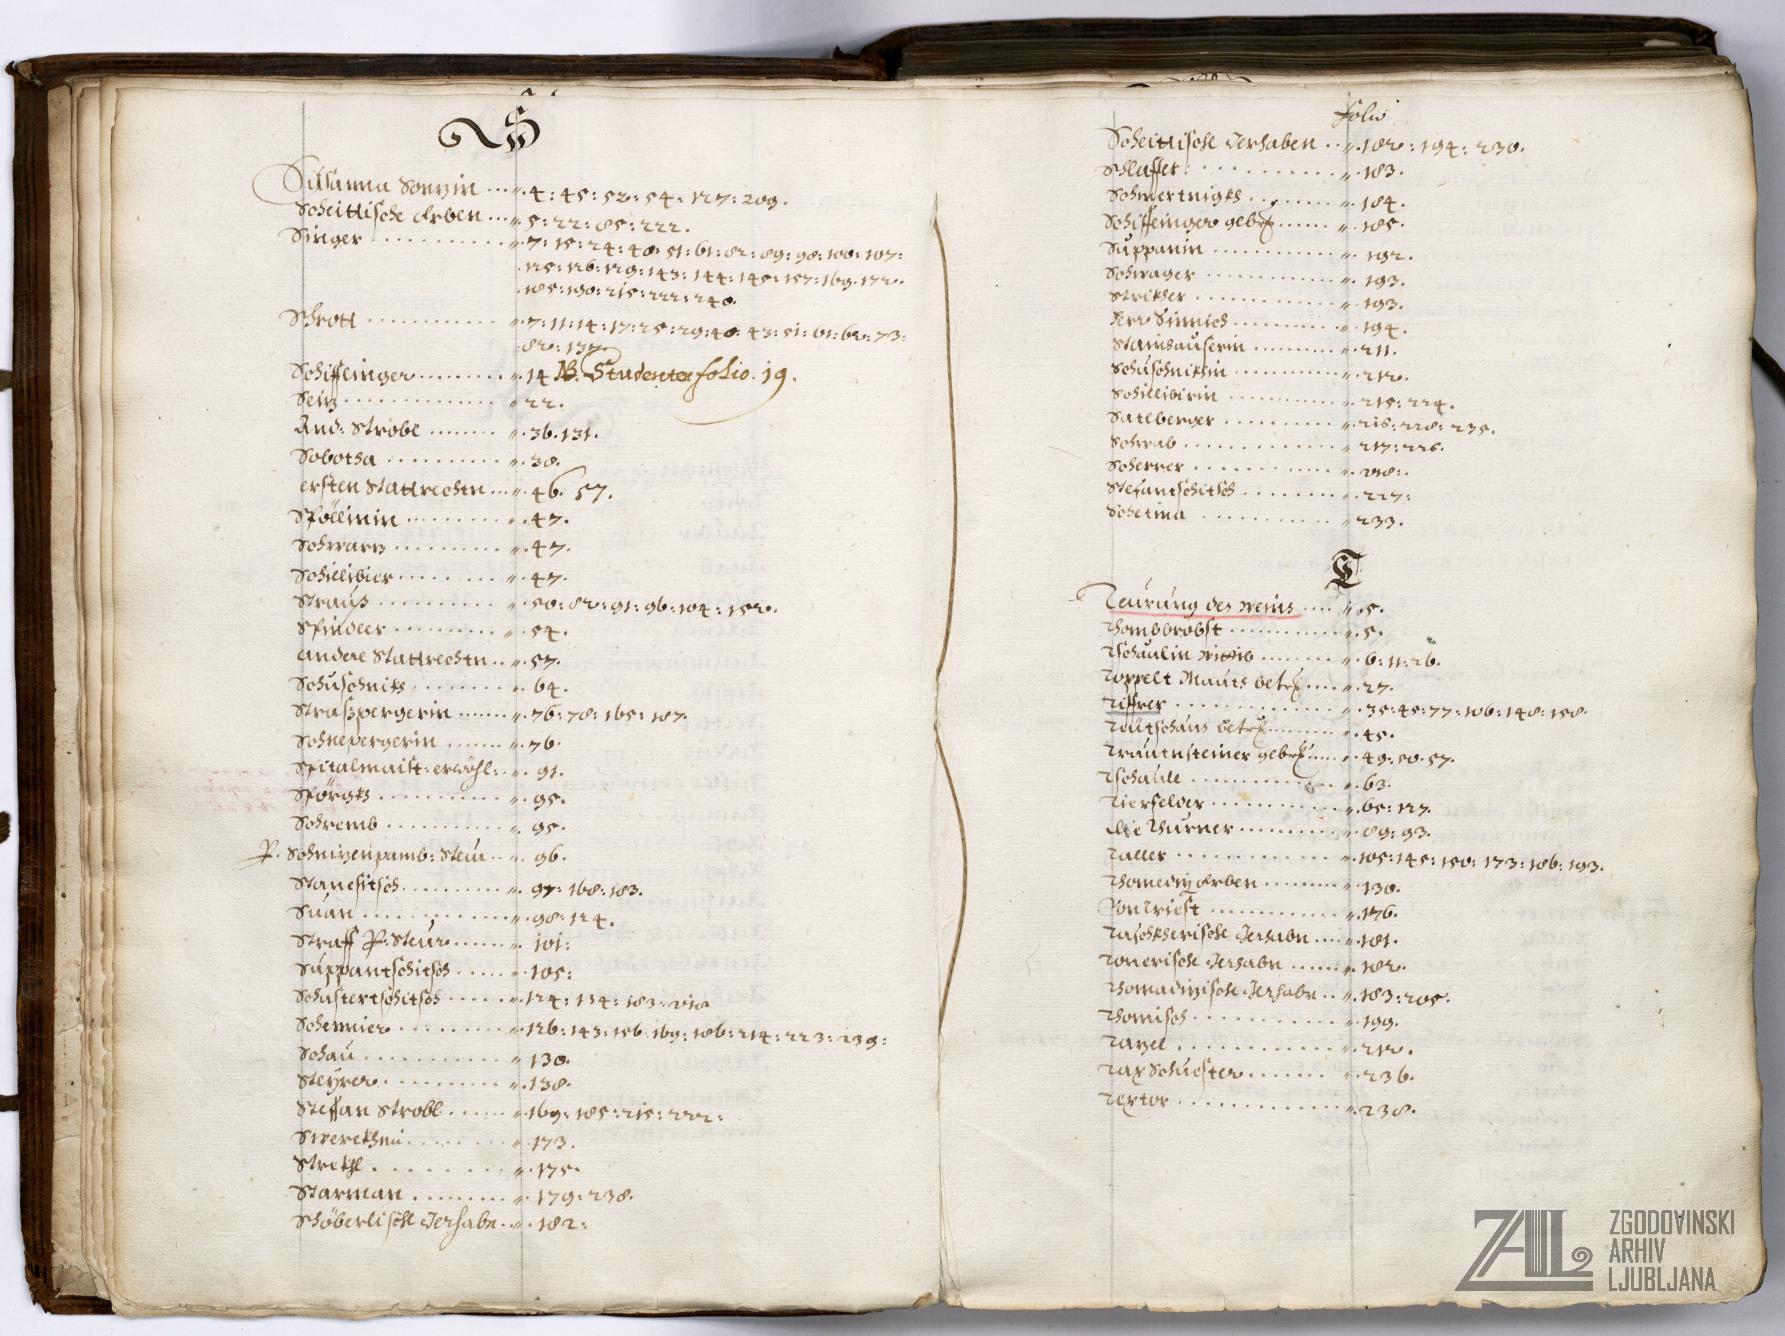 S
Susanna Sonzin ... 4: 45: 52: 54: 127: 209.
Scheittische Erben ... 5: 22: 85: 222.
Singer ... 7: 15: 24: 40: 51: 61: 82: 89: 98: 100: 107:
125: 126: 129: 143: 144: 145: 157: 169: 172.
185: 190: 215: 222: 240.
Schrott ... 7: 11: 14: 17: 25: 29: 40: 43: 51: 61: 62: 73:
82: 137.
Schiffeinger ... 14 NB. Studenten folio. 19.
Seiz ... 22.
And: Strobl ... 36. 131.
Sobotha ... 38.
ersten Stattrechtn ... 46. 57.
47.
Schwarz ... 47.
Schillibier ... 47.
Strauß ... 50: 82: 91: 96: 104: 152.
Spindler ... 54.
andere Stattrechtn ... 57.
Schuschnikh ... 64.
Straßpergerin ... 76: 78: 165: 187.
Schnepergerin ... 76.
Spitalmaist: erwöhl: ... 91.
Spörgkh ... 95.
Schremb ... 95.
P. Schnizenpamb: Steur ... 96.
97: 168: 183.
Suan ... 98: 124.
Straff P: Steur ... 101:
Suppantschitsch ... 105:
Schustertschitsch ... 124: 134: 183: 218
126: 143: 156: 169: 186: 214: 223: 239:
Schau ... 130.
Steyrer ... 138.
Steffan Strobl ... 169: 185: 215: 222:
173.
Strekhl ... 175.
Starman ... 179: 238.
Schöberlische Gerhabn ... 182:
Folio
Scheittische Gerhaben ... 182: 194: 230.
Schlaffer ... 183.
Schwertnigkh ... 184.
Schiffeinger ... 185.
Suppanin ... 192.
Schwager ... 193.
Strikher ... 193.
Herr Sinnich ... 194.
Stainhauserin ... 211.
Schuschnikhin ... 212.
Schillibirin ... 215: 224.
Satlberger ... 216: 228: 235.
Schwab ... 217: 226.
Scherrer ... 218:
Stefantschitsch ... 227:
Schetina ... 233.
T
Teurung des Weins ... 5.
Thombbrobst ... 5.
Tschaulin Wittib ... 6: 11: 26.
Toppelt Mauts betrf ... 27.
Tiffrer ... 35: 45: 77: 106: 148: 158.
Teutschaus betrf ... 45.
Trautnsteiner ... 49: 50: 57.
Tschaule ... 63.
Tierfelder ... 65: 127.
die Thurner ... 89: 93.
Taller ... 105: 145: 150: 173: 186: 193.
Thomediz Erben ... 130.
Von Triest ... 176.
Taschkherische Gerhabn ... 181.
Tonerische Gerhabn ... 182.
Thomadizische Gerhabn ... 183: 205.
Thomisch ... 199.
Tazel ... 212.
Tax Schuester ... 236.
Textor ... 238.
ZAL
ZGODOVINSKI
ARHIV
LJUBLJANA